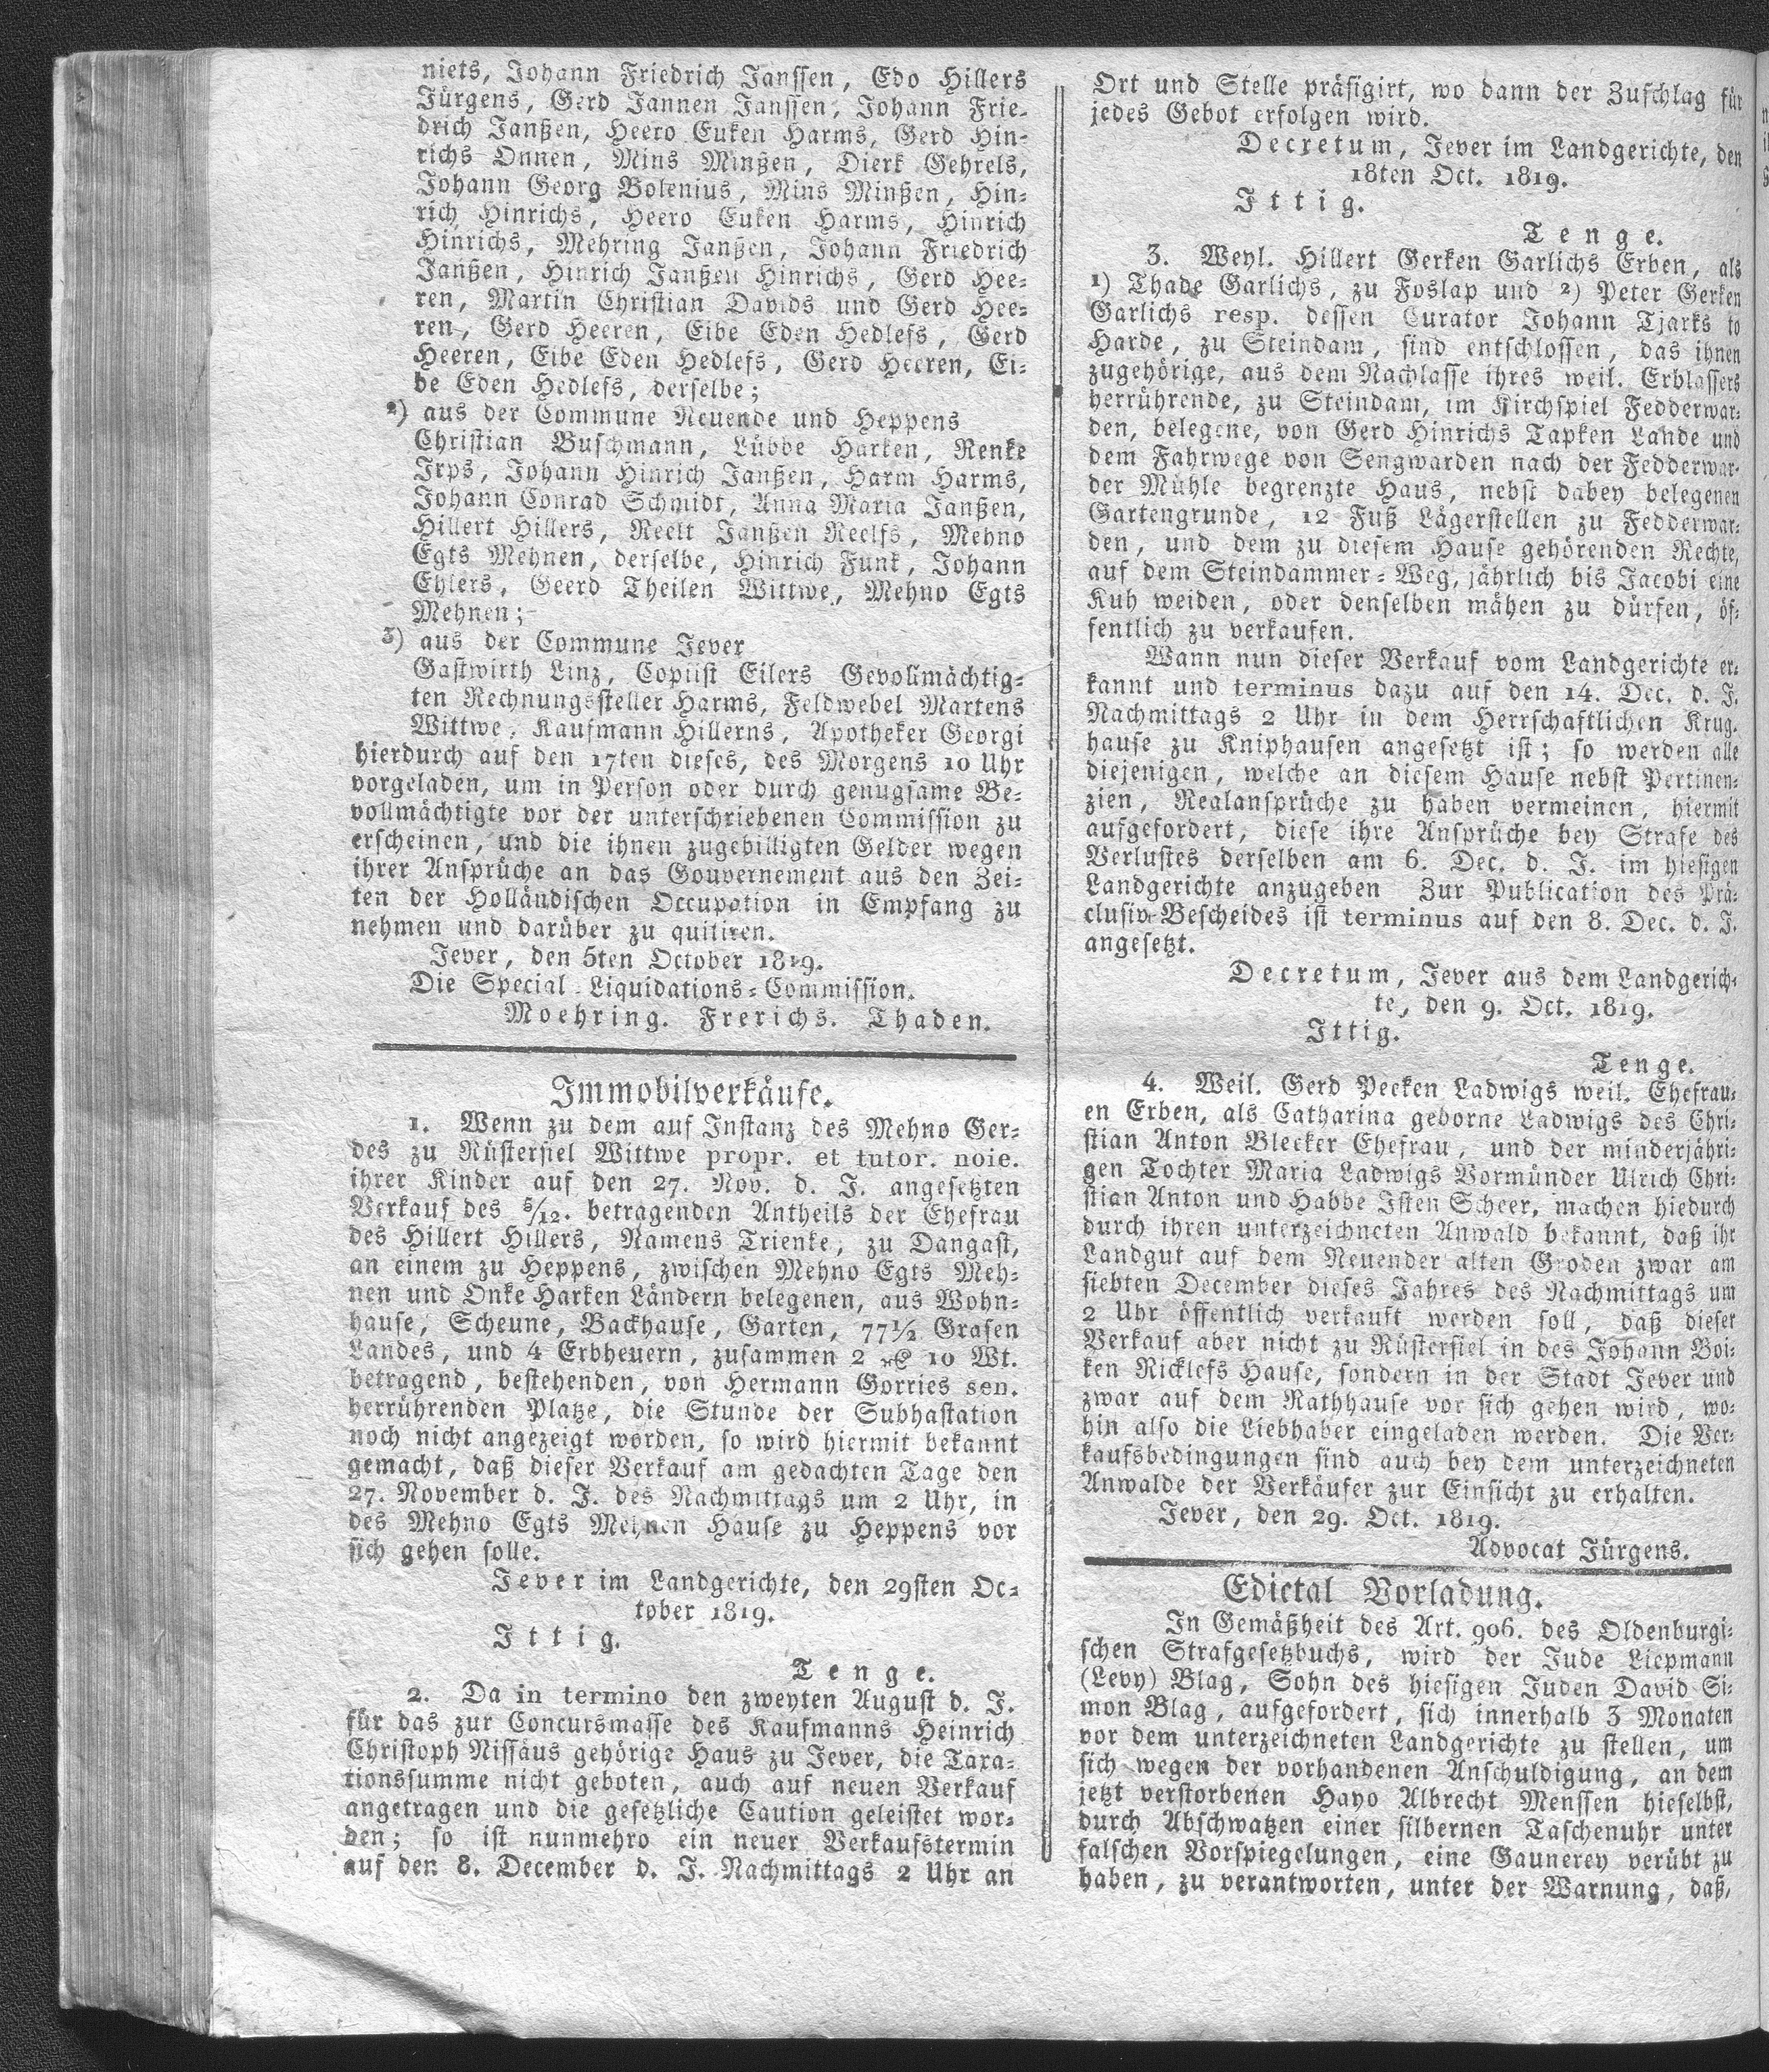 niets, Johann Friedrich Janssen, Edo Hillers
Jürgens, Gerd Jannen Janssen, Johann Frie-
drich Janßen, Heero Euken Harms, Gerd Hin-
richs Onnen, Mins Minßen, Dierk Gehrels,
Johann Georg Bolenius, Mins Minßen, Hin-
rich Hinrichs, Heero Euken Harms, Hinrich
Hinrichs, Mehring Janßen, Johann Friedrich
Janßen, Hinrich Janßen Hinrichs, Gerd Hee-
ren, Martin Christian Davids und Gerd Hee-
ren, Gerd Heeren, Eibe Eden Hedlefs, Gerd
Heeren, Eibe Eden Hedlefs, Gerd Heeren, Ei-
be Eden Hedlefs, derselbe;
2) aus der Commune Neuende und Heppens
Christian Buschmann, Lübbe Harken, Renke
Irps, Johann Hinrich Janßen, Harm Harms,
Johann Conrad Schmidt, Anna Maria Janßen,
Hillert Hillers, Reelt Janßen Reelfs, Mehno
Egts Mehnen, derselbe, Hinrich Funk, Johann
Ehlers, Geerd Theilen Wittwe, Mehno Egts
Mehnen;
3) aus der Commune Jever
Gastwirth Linz, Copiist Eilers Gevollmächtig-
ten Rechnungssteller Harms, Feldwebel Martens
Wittwe, Kaufmann Hillerns, Apotheker Georgi
hierdurch auf den 17ten dieses, des Morgens 10 Uhr
vorgeladen, um in Person oder durch genugsame Be-
vollmächtigte vor der unterschriebenen Commission zu
erscheinen, und die ihnen zugebilligten Gelder wegen
ihrer Ansprüche an das Gouvernement aus den Zei-
ten der Holländischen Occupation in Empfang zu
nehmen und darüber zu quitiren.
Jever, den 5ten October 1819.
Die Special-Liquidations-Commission.
Moehring. Frerichs. Thaden.
Immobilverkäufe.
1. Wenn zu dem auf Instanz des Mehno Ger-
des zu Rüstersiel Wittwe propr. et tutor. noie.
ihrer Kinder auf den 27. Nov. d. J. angesetzten
Verkauf des 5/12. betragenden Antheils der Ehefrau
des Hillert Hillers, Namens Trienke, zu Dangast,
an einem zu Heppens, zwischen Mehno Egts Meh-
nen und Onke Harken Ländern belegenen, aus Wohn-
hause, Scheune, Backhause, Garten, 77 1/2 Grasen
Landes, und 4 Erbheuern, zusammen 2 10 Wt.
betragend, bestehenden, von Hermann Gorries sen.
herrührenden Platze, die Stunde der Subhastation
noch nicht angezeigt worden, so wird hiermit bekannt
gemacht, daß dieser Verkauf am gedachten Tage den
27. November d. J. des Nachmittags um 2 Uhr, in
des Mehno Egts Mehnen Hause zu Heppens vor
sich gehen solle.
Jever im Landgerichte, den 29sten Oc-
tober 1819.
Ittig.
Tenge.
2. Da in termino den zweyten August d. J.
für das zur Concursmasse des Kaufmanns Heinrich
Christoph Nissäus gehörige Haus zu Jever, die Taxa-
tionssumme nicht geboten, auch auf neuen Verkauf
angetragen und die gesetzliche Caution geleistet wor-
den; so ist nunmehro ein neuer Verkaufstermin
auf den 8. December d. J. Nachmittags 2 Uhr an
Ort und Stelle präfigirt, wo dann der Zuschlag für
jedes Gebot erfolgen wird.
Decretum, Jever im Landgerichte, den
18ten Oct. 1819.
Ittig.
Tenge.
3. Weyl. Hillert Gerken Garlichs Erben, als
1) Thade Garlichs, zu Foslap und 2) Peter Gerken
Garlichs resp. dessen Curator Johann Tjarks to
Harde, zu Steindam, sind entschlossen, das ihnen
zugehörige, aus dem Nachlasse ihres weil. Erblassers
herrührende, zu Steindam, im Kirchspiel Fedderwar-
den, belegene, von Gerd Hinrichs Tapken Lande und
dem Fahrwege von Sengwarden nach der Fedderwar-
der Mühle begrenzte Haus, nebst dabey belegenen
Gartengrunde, 12 Fuß Lägerstellen zu Fedderwar-
den, und dem zu diesem Hause gehörenden Rechte,
auf dem Steindammer-Weg, jährlich bis Jacobi eine
Kuh weiden, oder denselben mähen zu dürfen, öf-
fentlich zu verkaufen.
Wann nun dieser Verkauf vom Landgerichte er-
kannt und terminus dazu auf den 14. Dec. d. J.
Nachmittags 2 Uhr in dem Herrschaftlichen Krug-
hause zu Kniphausen angesetzt ist; so werden alle
diejenigen, welche an diesem Hause nebst Pertinen-
zien, Realansprüche zu haben vermeinen, hiermit
aufgefordert, diese ihre Ansprüche bey Strafe des
Verlustes derselben am 6. Dec. d. J. im hiesigen
Landgerichte anzugeben Zur Publication des Prä-
clusiv-Bescheides ist terminus auf den 8. Dec. d. J.
angesetzt.
Decretum, Jever aus dem Landgerich-
te, den 9. Oct. 1819.
Ittig.
Tenge.
4. Weil. Gerd Peeken Ladwigs weil. Ehefrau-
en Erben, als Catharina geborne Ladwigs des Chri-
stian Anton Bleeker Ehefrau, und der minderjähri-
gen Tochter Maria Ladwigs Vormünder Ulrich Chri-
stian Anton und Habbe Isten Scheer, machen hiedurch
durch ihren unterzeichneten Anwald bekannt, daß ihr
Landgut auf dem Neuender alten Groden zwar am
siebten December dieses Jahres des Nachmittags um
2 Uhr öffentlich verkauft werden soll, daß dieser
Verkauf aber nicht zu Rüstersiel in des Johann Boi-
ken Ricklefs Hause, sondern in der Stadt Jever und
zwar auf dem Rathhause vor sich gehen wird, wo-
hin also die Liebhaber eingeladen werden. Die Ver-
kaufsbedingungen sind auch bey dem unterzeichneten
Anwalde der Verkäufer zur Einsicht zu erhalten.
Jever, den 29. Oct. 1819.
Advocat Jürgens.
Edictal Vorladung.
In Gemäßheit des Art. 906. des Oldenburgi-
schen Strafgesetzbuchs, wird der Jude Liepmann
(Levy) Blag, Sohn des hiesigen Juden David Si-
mon Blag, aufgefordert, sich innerhalb 3 Monaten
vor dem unterzeichneten Landgerichte zu stellen, um
sich wegen der vorhandenen Anschuldigung, an dem
jetzt verstorbenen Hayo Albrecht Menssen hieselbst,
durch Abschwatzen einer silbernen Taschenuhr unter
falschen Vorspiegelungen, eine Gaunerey verübt zu
haben, zu verantworten, unter der Warnung, daß,